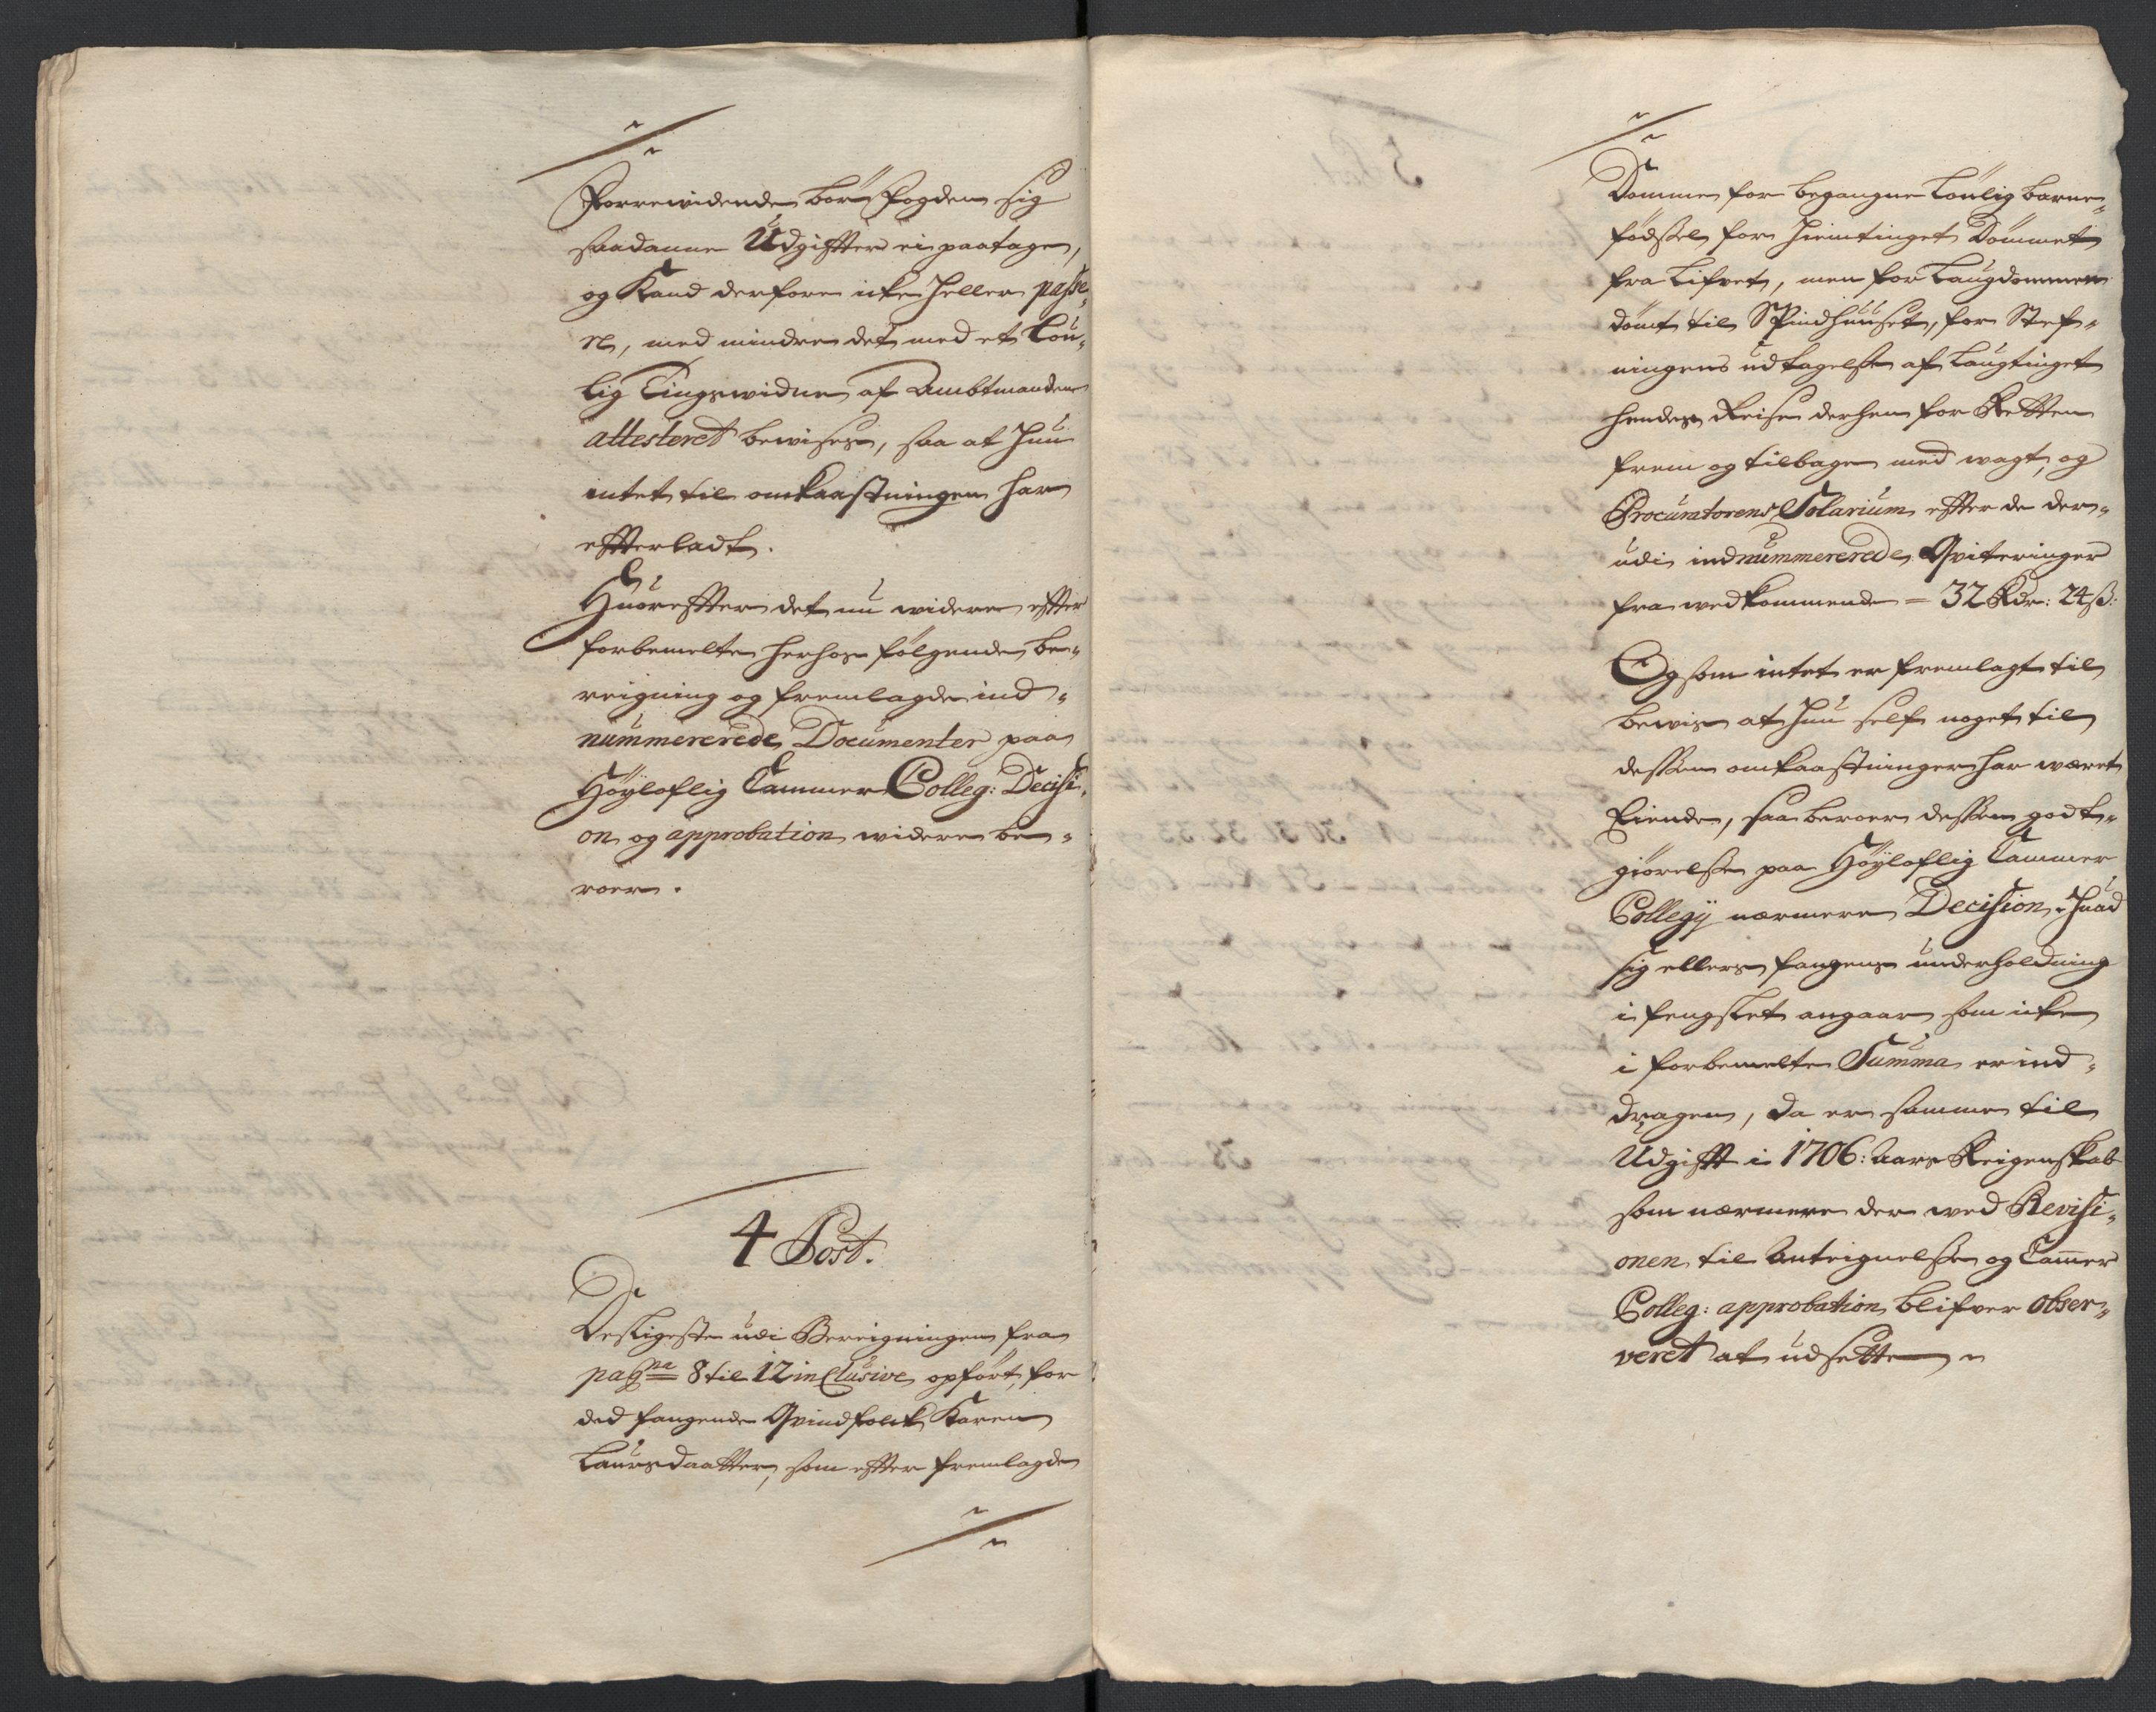 Forrewidende bör Fogden sig
saadanne Udgiffter ei paatage,
og Kand derfore icke heller passe-
re, med mindre det med et Lou-
lig Tingswidne af Ambtmanden
attesteret bewises, saa at hun
intet til omkaastningen har
effterladt.
Huoreffter det nu widere effter
forbemelte herhos fölgende be-
reigning og fremlagde ind-
nummererede Documenter paa
Höylofflig Cammer Colleg: Decisi-
on og approbation widere be-
roer.
4 Post.
Desligeste udi Bereigningen fra
pagne 8 til 12 inclusive opfört, for
ded fangende Qvindfolck Karen
Laursdaatter, som effter fremlagde
Domme for begangne Lönlig barne-
födssel for Hiemtinget Dömmet
fra Lifvet, men for Laugdommen
dömt til Spindhuuset, for Stef-
ningens udtagelsse af Laugtinget
hendes Reise derhen for Retten
frem og tilbage med wagt, og
Procuratorens Solarium effter de der-
udi indnummererede Qviteringer
fra wedkommende = 32 Rdr: 24 ß:
Og som intet er fremlagt til
bewis at hun self noget til
dessen omkaastninger har wæret
Eiende, saa beroer dessen godt-
giörelsse paa Höylofflig Cammer
Collegij nærmere Decision. Huad
sig ellers fangens underholdning
i fengslet angaar som icke
i forbemelte Summa er ind-
dragen, da er samme til
Udgifft i 1706: Aars Reigenskab
som nærmere der wed Revisi-
onen til Anteignelsse og Cammer
Colleg: approbation blifver obser-
veret at udsette